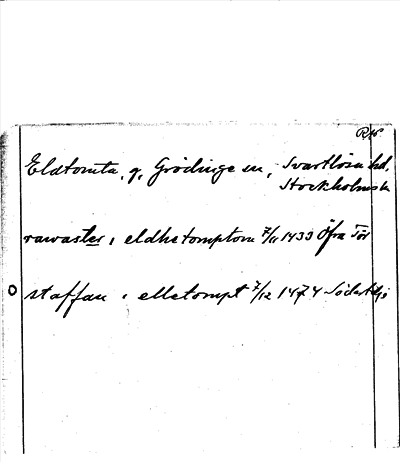 Eldtomta, g, Grödinge sn, Svartlösa hd,
Stockholms ln
rawaster i eldhetomptom 7/11 1433 Öfra Tör
staffan i elletompt 7/12 1474 Södertelje